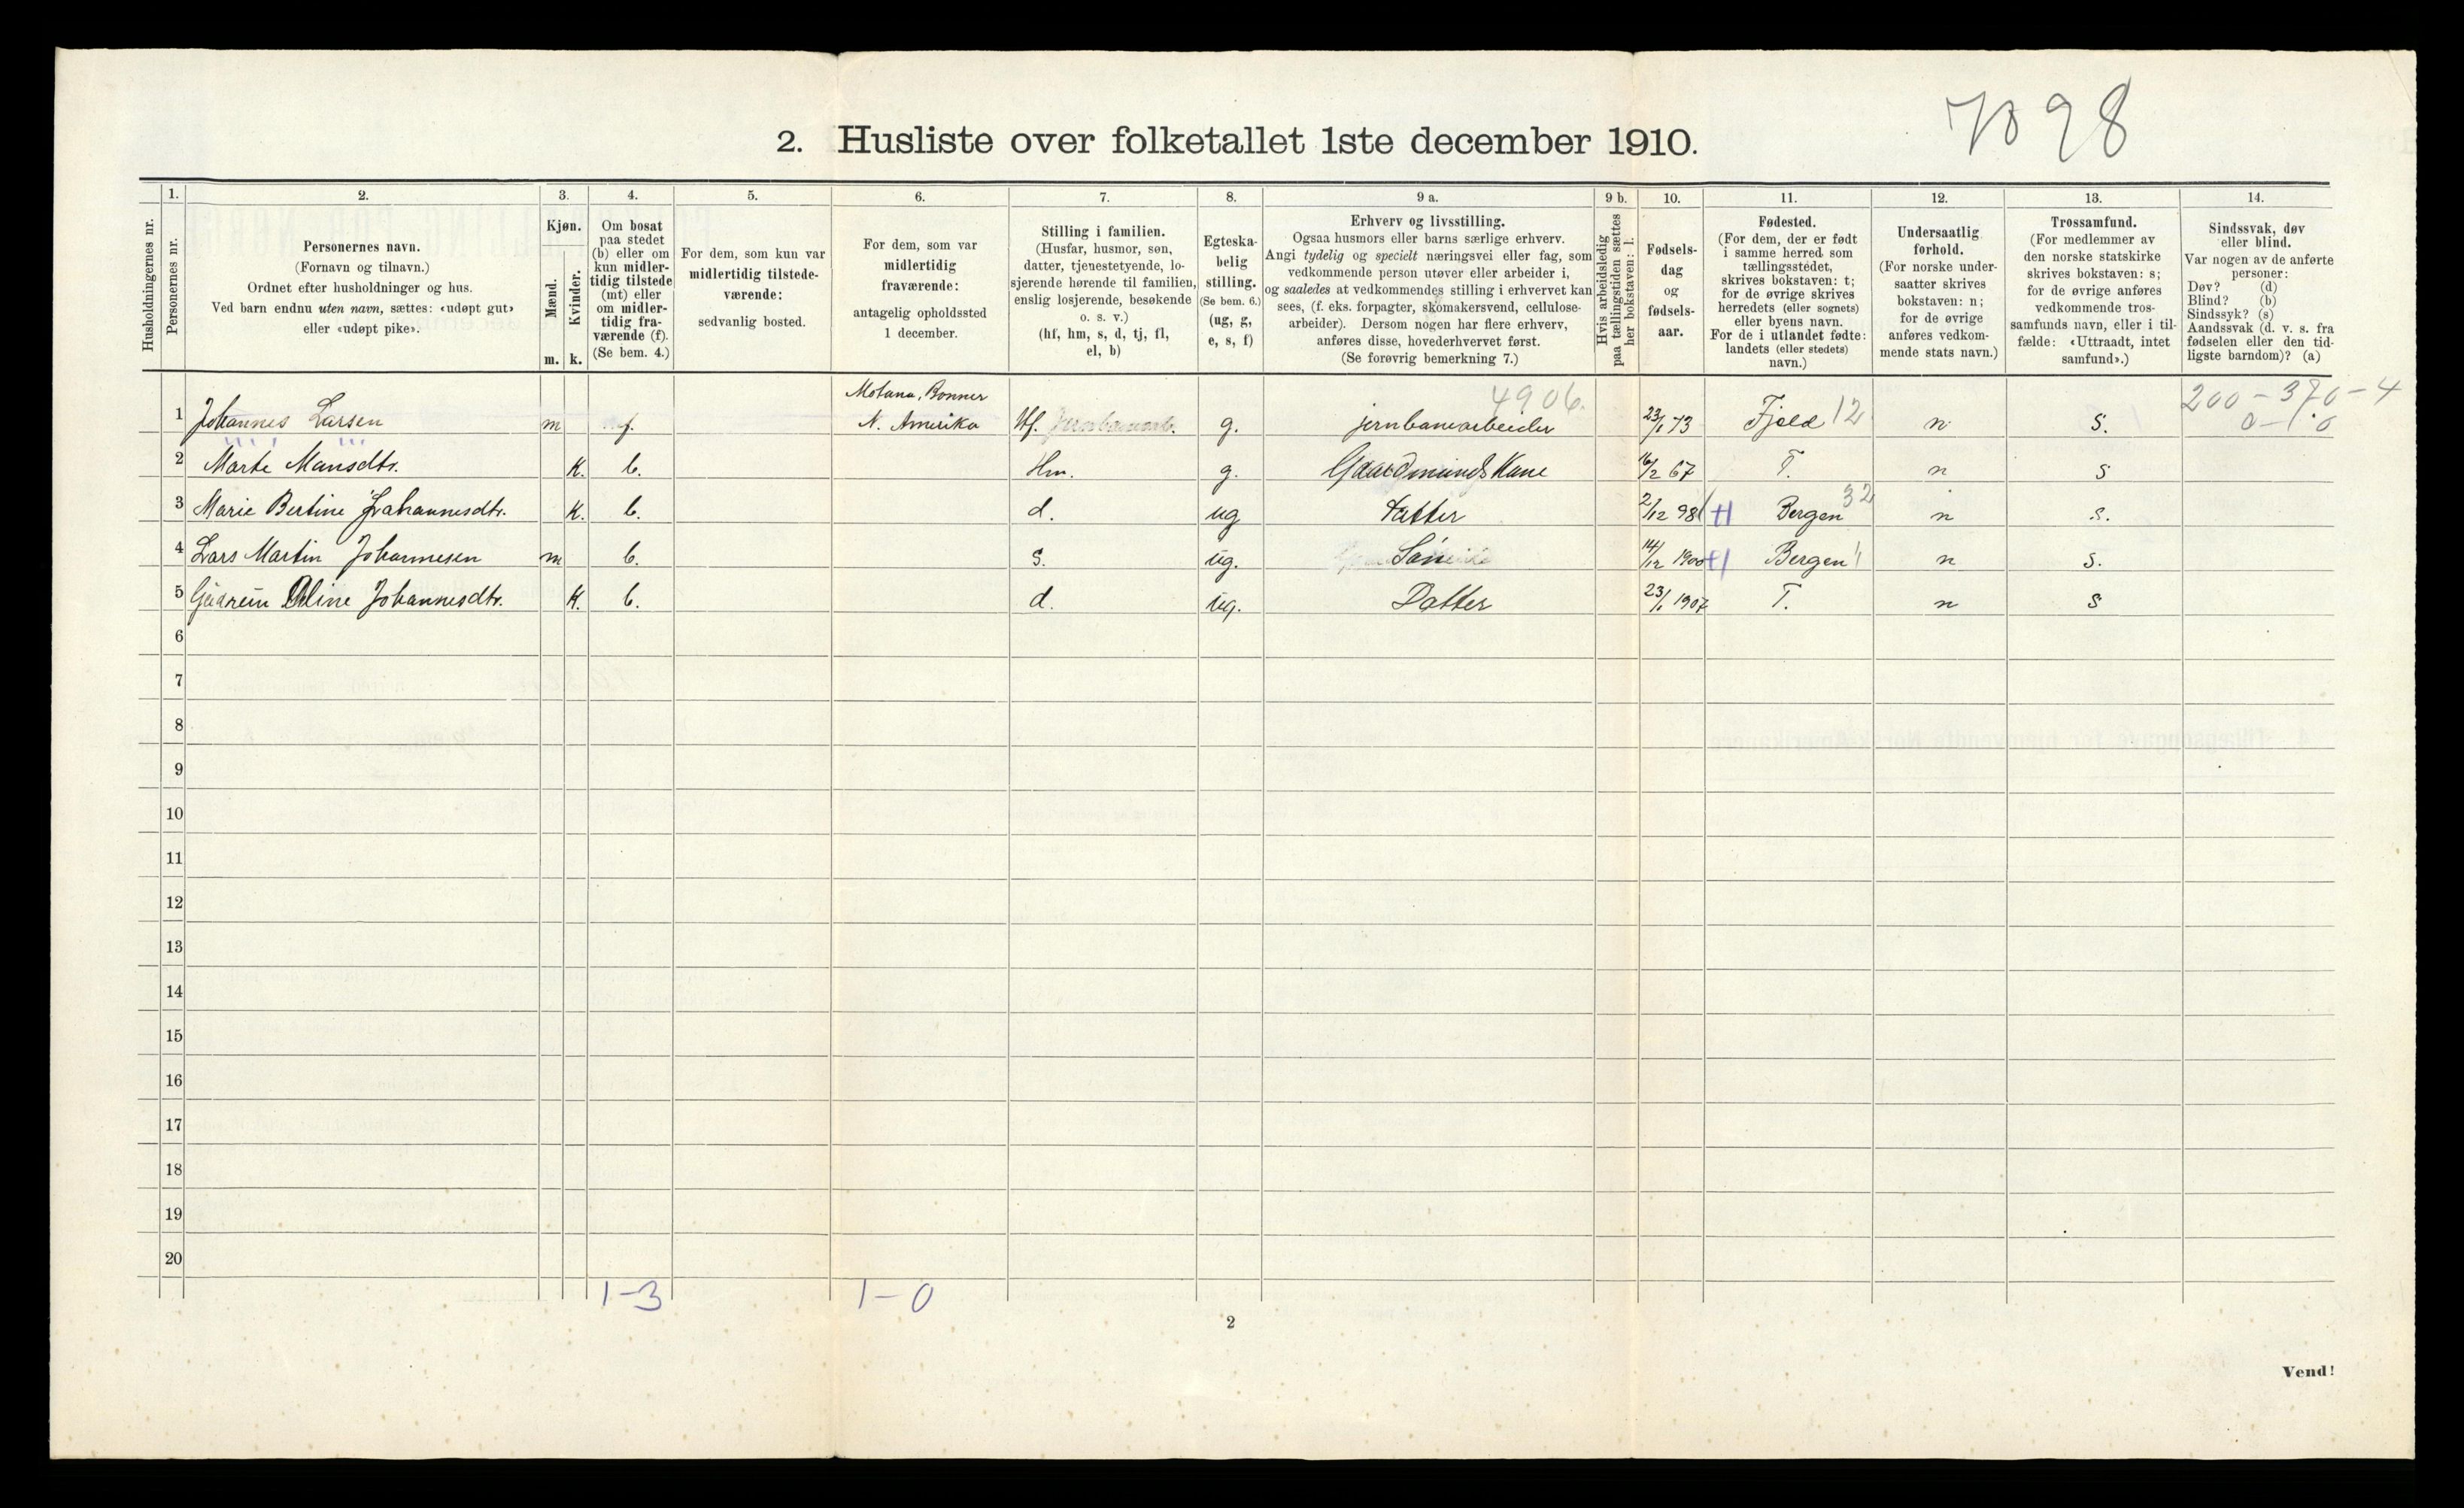 7098
2. Husliste over folketallet 1ste december 1910.
1. 2. 3. 4. 5. 6. 7. 8. 9 a. 9 b. 10. 11. 12. 13. 14.
Husholdningernes nr.
Personernes nr.
Personernes navn.
(Fornavn og tilnavn.)
Ordnet efter husholdninger og hus.
Ved barn endnu uten navn, sættes: «udøpt gut»
eller «udøpt pike».
Kjøn.
Mænd.
Kvinder.
m. k.
Om bosat
paa stedet
(b) eller om
kun midler-
tidig tilstede
(mt) eller
om midler-
tidig fra-
værende (f).
(Se bem. 4.)
For dem, som kun var
midlertidig tilstede-
værende:
sedvanlig bosted.
For dem, som var
midlertidig
fraværende:
antagelig opholdssted
1 december.
Stilling i familien.
(Husfar, husmor, søn,
datter, tjenestetyende, lo-
sjerende hørende til familien,
enslig losjerende, besøkende
o. s. v.)
(hf, hm, s, d, tj, fl,
el, b)
Egteska-
belig
stilling.
(Se bem. 6.)
(ug, g,
e, s, f)
Erhverv og livsstilling.
Ogsaa husmors eller barns særlige erhverv.
Angi tydelig og specielt næringsvei eller fag, som
vedkommende person utøver eller arbeider i,
og saaledes at vedkommendes stilling i erhvervet kan
sees, (f. eks. forpagter, skomakersvend, cellulose-
arbeider). Dersom nogen har flere erhverv,
anføres disse, hovederhvervet først.
(Se forøvrig bemerkning 7.)
Hvis arbeidsledig
paa tællingstiden sættes
her bokstaven: l.
Fødsels-
dag
og
fødsels-
aar.
Fødested.
(For dem, der er født
i samme herred som
tællingsstedet,
skrives bokstaven: t;
for de øvrige skrives
herredets (eller sognets)
eller byens navn.
For de i utlandet fødte:
landets (eller stedets)
navn.)
Undersaatlig
forhold.
(For norske under-
saatter skrives
bokstaven: n;
for de øvrige
anføres vedkom-
mende stats navn.)
Trossamfund.
(For medlemmer av
den norske statskirke
skrives bokstaven: s;
for de øvrige anføres
vedkommende tros-
samfunds navn, eller i til-
fælde: «Uttraadt, intet
samfund».)
Sindssvak, døv
eller blind.
Var nogen av de anførte
personer:
Døv? (d)
Blind? (b)
Sindssyk? (s)
Aandssvak (d. v. s. fra
fødselen eller den tid-
ligste barndom)? (a)
Motana, Bonner 4906. 200-370-4
1 Johannes Larsen m f. N. Amerika Hf. g. jernbanearbeider 23/1 73 Fjeld 12 n s. 0-1.0
2 Marte Mansdtr. K. b. Hm. g. Gaardmands Kane 16/2 67 T. n s
3 Marie Bertine Johannesdtr. K. b. d. ug Datter 2/12 98 Bergen 32 n s.
4 Lars Martin Johannesen m b. s. ug. Sön 14/12 1900 Bergen n s.
5 Gudrun Oline Johannesdtr. K. b. d. ug. Datter 23/1 1907 T. n s
6
7
8
9
10
11
12
13
14
15
16
17
18
19
20
1-3 1-0
2
Vend!